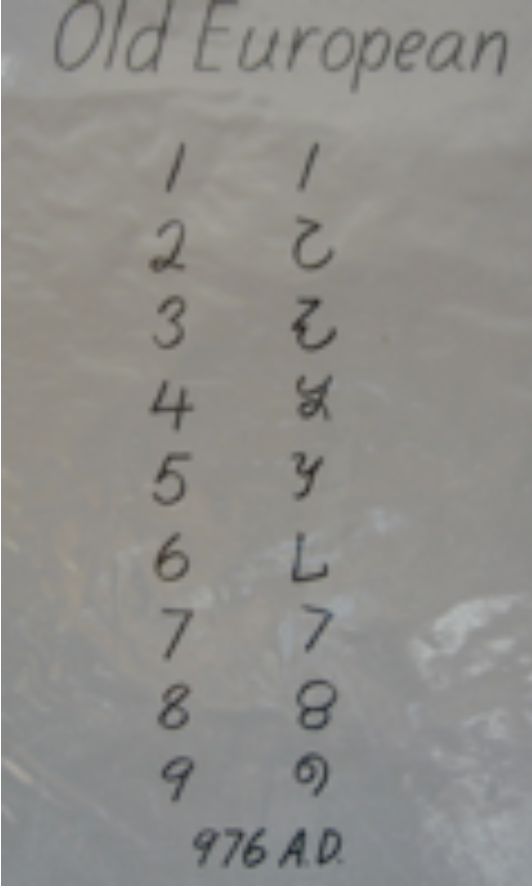 Old European
1 1
2
3
4
5
6
7 7
8 8
9
976 A.D.